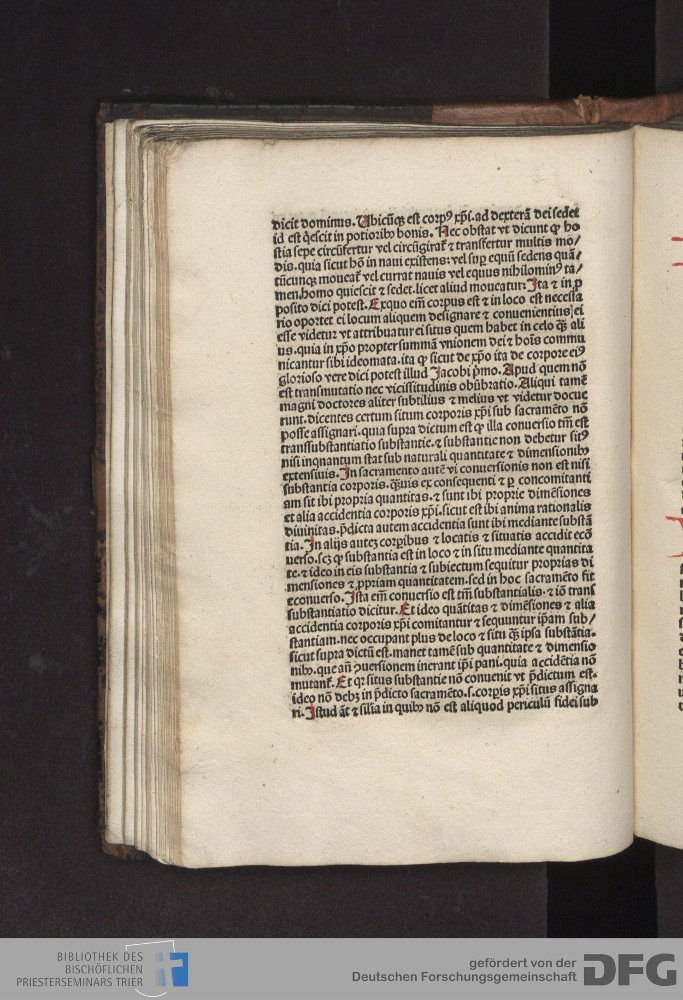 dicit dominus. Ubicūqȝ est corpꝰ xp̄i. ad dexterā dei sedet
id est q̇escit in potioribꝰ bonis. Nec obstat vt dicunt ꝙ ho
stia sepe circūfertur vel circūgirat̄ ⁊ transfertur multis mo/
dis. quia sicut hō in naui existens: vel suꝑ equū sedens quā/
tūcunqȝ moueat̄ vel currat nauis vel equus nihilominꝰ ta/
men. homo quiescit ⁊ sedet. licet aliud moueatur: Ita ⁊ in ꝓ
posito dici potest. Exquo em̄ corpus est ⁊ in loco est necessa
rio oportet ei locum aliquem designare ⁊ conuenientius ei
esse videtur vt attribuatur ei situs quem habet in celo q̄ȝ ali
us. quia in xp̄o propter summā vnionem dei ⁊ hoīs commu
nicantur sibi ideomata. ita ꝙ sicut de xp̄o ita de corpore eiꝰ
glorioso vere dici potest illud Jacobi p̄mo. Apud quem nō
est transmutatio nec vicissitudinis obūbratio. Aliqui tamē
magni doctores aliter subtilius ⁊ melius vt videtur docue
runt. dicentes certum situm corporis xp̄i sub sacramēto nō
posse assignari. quia supra dictum est ꝙ illa conuersio tm̄ est
transsubstantiatio substantie. ⁊ substantie non debetur sitꝰ
nisi inqnantum stat sub naturali quantitate ⁊ dimensionibꝰ
extensiuis. In sacramento autē vi conuersionis non est nisi
substantia corporis. q̄ȝuis ex consequenti ⁊ ꝑ concomitanti
am sit ibi propria quantitas. ⁊ sunt ibi proprie dimēsiones
et alia accidentia corporis xp̄i. sicut est ibi anima rationalis
diuinitas. p̄dicta autem accidentia sunt ibi mediante substā
tia. In alijs autez corꝑibus ⁊ locatis ⁊ situatis accidit ecō
uerso. scȝ ꝙ substantia est in loco ⁊ in situ mediante quantita
te. ⁊ ideo in eis substantia ⁊ subiectum sequitur proprias di
mensiones ⁊ ꝓpriam quantitatem. sed in hoc sacramēto fit
econuerso. Ista em̄ conuersio est tm̄ substantialis. ⁊ iō trans
substantiatio dicitur. Et ideo quātitas ⁊ dimēsiones ⁊ alia
accidentia corporis xp̄i comitantur ⁊ sequuntur ip̄am sub/
stantiam. nec occupant plus de loco ⁊ situ q̄ȝ ipsa substātia.
sicut supra dictū est. manet tamē sub quantitate ⁊ dimensio
nibꝰ. que an̄ ꝯuersionem inerant ip̄i pani. quia accidētia nō
mutant̄. Et qꝛ situs substantie nō conuenit vt p̄dictum est.
ideo nō debȝ in p̄dicto sacramēto. s. corꝑis xp̄i situs assigna
ri. Istud āt ⁊ silīa in quibꝰ nō est aliquod periculū fidei sub
BIBLIOTHEK DES
BISCHÖFLICHEN
PRIESTERSEMINARS TRIER
gefördert von der
Deutschen Forschungsgemeinschaft
DFG